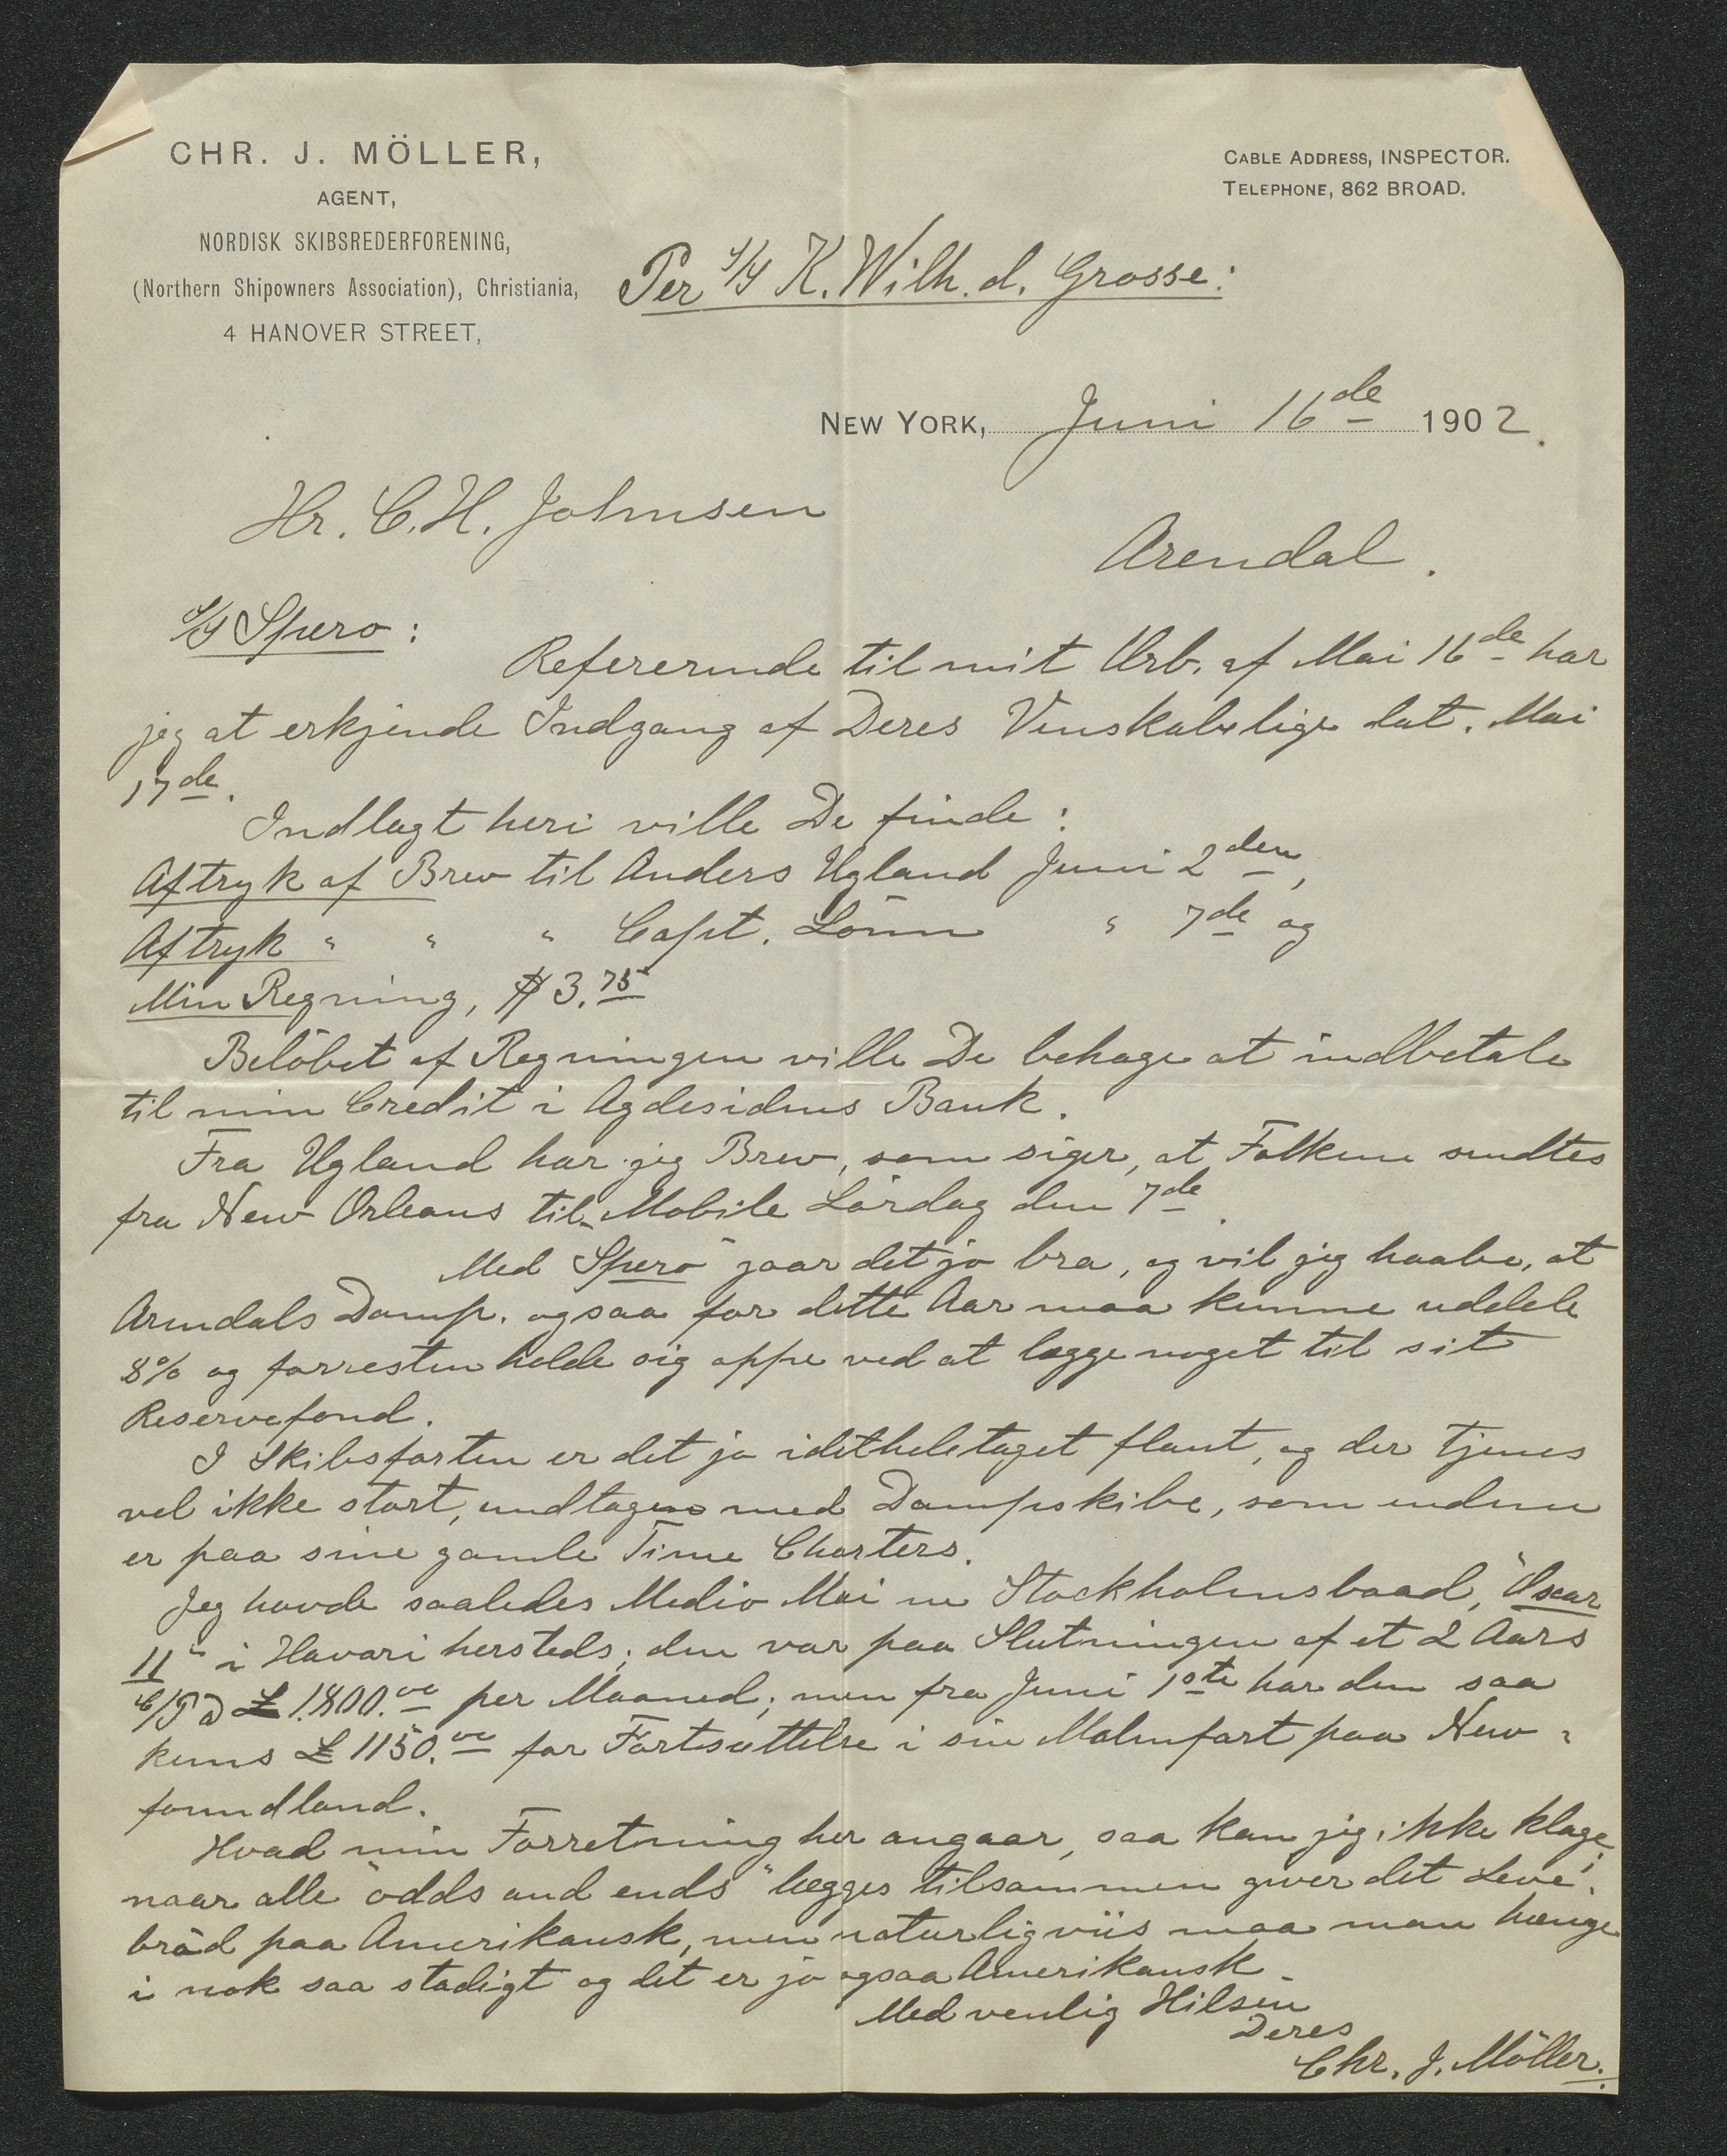 CHR. J. MÖLLER,
AGENT,
NORDISK SKIBSREDERFORENING,
(Northern Shipowners Association), Christiania,
4 HANOVER STREET,
CABLE ADDRESS, INSPECTOR.
TELEPHONE, 862 BROAD.
Per S/S K. Wilh. d. Grosse:
NEW YORK, Juni 16de 1902.
Hr. C. H. Johnsen
Arendal.
S/S Spero:
Refererende til mit Ærb. af Mai 16de har
jeg at erkjende Indgang af Deres Venskabelige dat. Mai
17de.
Indlagt heri ville De finde:
Aftryk af Brev til Anders Ugland Juni 2den,
Aftryk " " " Capt. Lönn " 7de og
Min Regning, $ 3.75
Belöbet af Regningen ville De behage at indbetale
til min Credit i Agdesidens Bank.
Fra Ugland har jeg Brev, som siger, at Folkene sendtes
fra New Orleans til Mobile Lördag den 7de.
Med "Spero" gaar det jo bra, og vil jeg haabe, at
Arendals Damp. ogsaa for dette Aar maa kunne uddele
8% og forresten holde sig oppe ved at lægge noget til sit
Reservefond.
I Skibsfarten er det jo idetheletaget flaut, og der tjenes
vel ikke stort, undtagen med Dampskibe, som endnu
er paa sine gamle Time Charters.
Jeg havde saaledes Medio Mai en Stockholmsbaad, "Oscar
II" i Havari hersteds; den var paa Slutningen af et 2 Aars
C/P a £ 1.800.00 per Maaned; men fra Juni 1ste har den saa
kuns £ 1150.00 for Fortsættelse i sin Malmfart paa New-
foundland.
Hvad min Forretning her angaar, saa kan jeg ikke klage;
naar alle "odds and ends" lægges tilsammen giver det Leve-
bröd paa Amerikansk, men naturligviis maa man hænge
i nok saa stadigt og det er jo ogsaa Amerikansk.
Med venlig Hilsen
Deres
Chr. J. Möller.